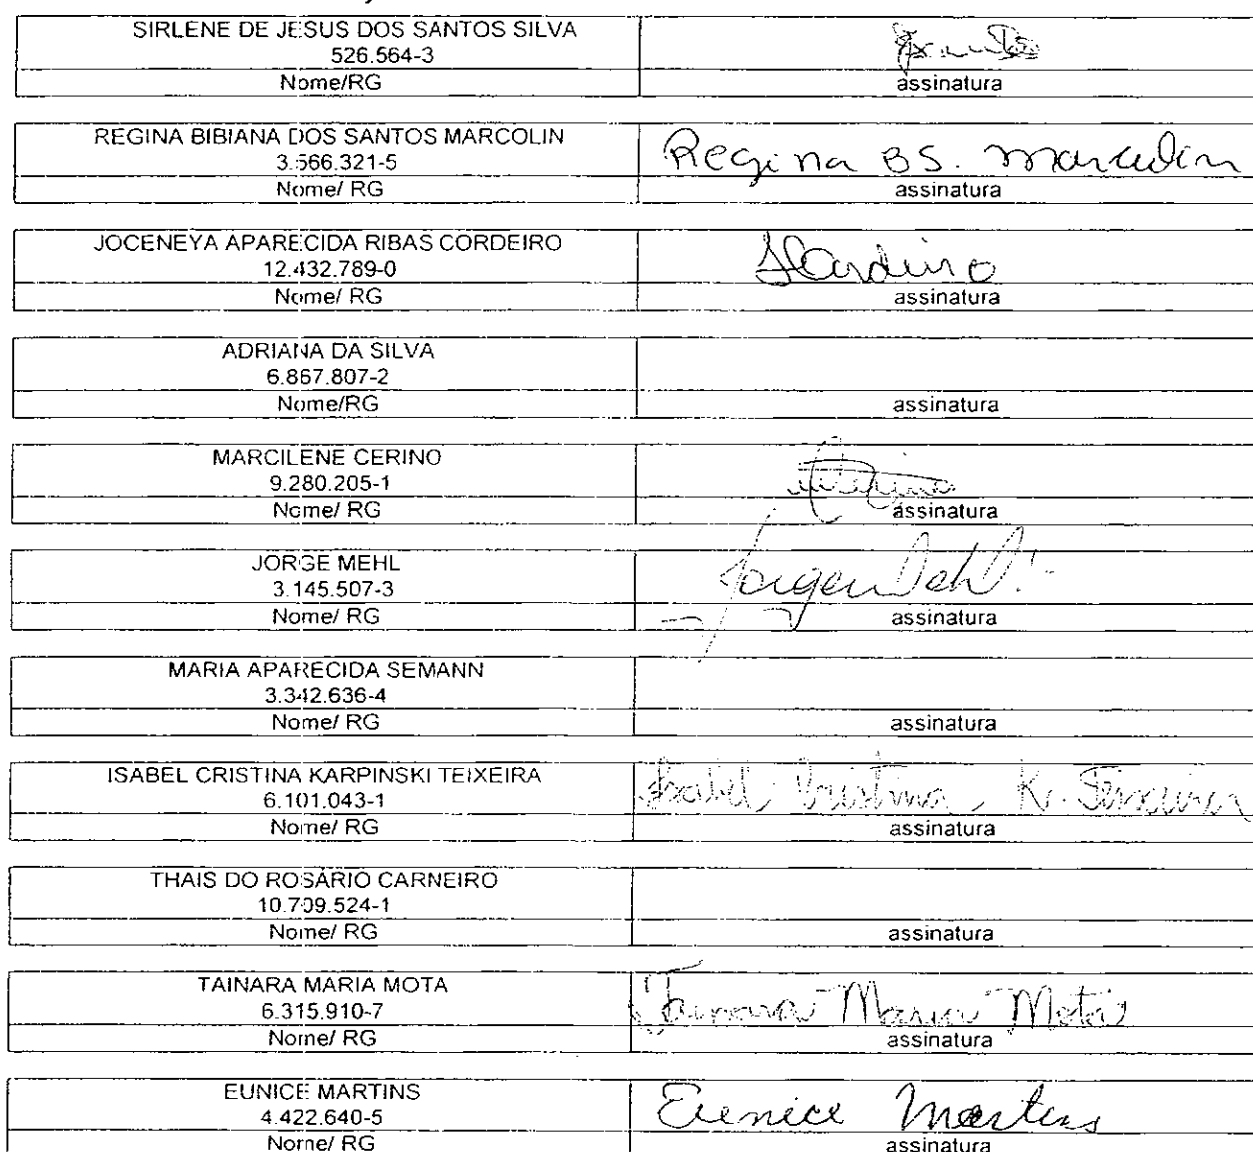 SIRLENE DE JESUS DOS SANTOS SILVA
526.564-3
Nome/RG assinatura
REGINA BIBIANA DOS SANTOS MARCOLIN
3.566.321-5 Regina BS. Marcolin
Nome/ RG assinatura
JOCENEYA APARECIDA RIBAS CORDEIRO
12.432.789-0 JCordeiro
Nome/ RG assinatura
ADRIANA DA SILVA
6.867.807-2
Nome/RG assinatura
MARCILENE CERINO
9.280.205-1
Nome/ RG assinatura
JORGE MEHL
3.145.507-3 Jorge Mehl
Nome/ RG assinatura
MARIA APARECIDA SEMANN
3.342.636-4
Nome/ RG assinatura
ISABEL CRISTINA KARPINSKI TEIXEIRA
6.101.043-1 Isabel Cristina K. Teixeira
Nome/ RG assinatura
THAIS DO ROSÁRIO CARNEIRO
10.709.524-1
Nome/ RG assinatura
TAINARA MARIA MOTA
6.315.910-7 Tainara Maria Mota
Nome/ RG assinatura
EUNICE MARTINS
4.422.640-5 Eunice Martins
Nome/ RG assinatura